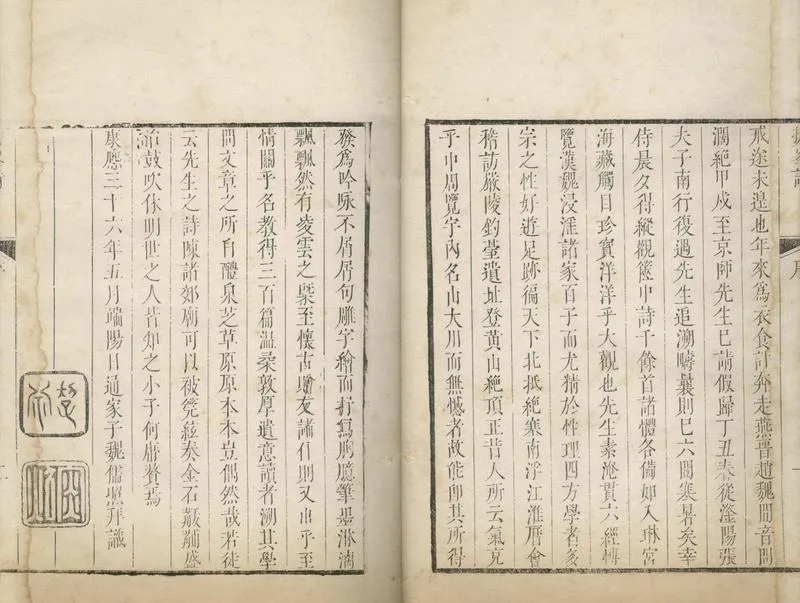 戒途未遑也年來為衣食計奔走燕晉趙魏間音問
濶絶甲戌至京師先生已請假歸丁丑春從瀅陽張
夫子南行復過先生追溯疇曩則已六閱寒暑矣幸
侍晨夕得縱觀篋中詩千餘首諸體各備如入琳宮
海藏觸目珍寶洋洋乎大觀也先生素淹貫六經博
覽漢魏浸淫諸家百子而尤精於性理四方學者多
宗之性好遊足跡徧天下北抵絶塞南浮江淮歷會
稽訪嚴陵釣臺遺址登黃山絶頂正昔人所云氣充
乎中周覽宇內名山大川而無憾者故能即其所得
發為吟咏不屑屑句雕字繪而抒寫胸臆筆墨淋漓
飄飄然有凌雲之槩至懷古贈友諸什則又出乎至
情關乎名教得三百篇溫柔敦厚遺意讀者溯其學
問文章之所自醴泉芝草原原本本豈偶然哉若徒
云先生之詩陳諸郊廟可以被筦絃奏金石黻黼盛
治鼓吹休明世之人皆知之小子何庸贅焉
康熙三十六年五月端陽日通家子魏儒照拜識